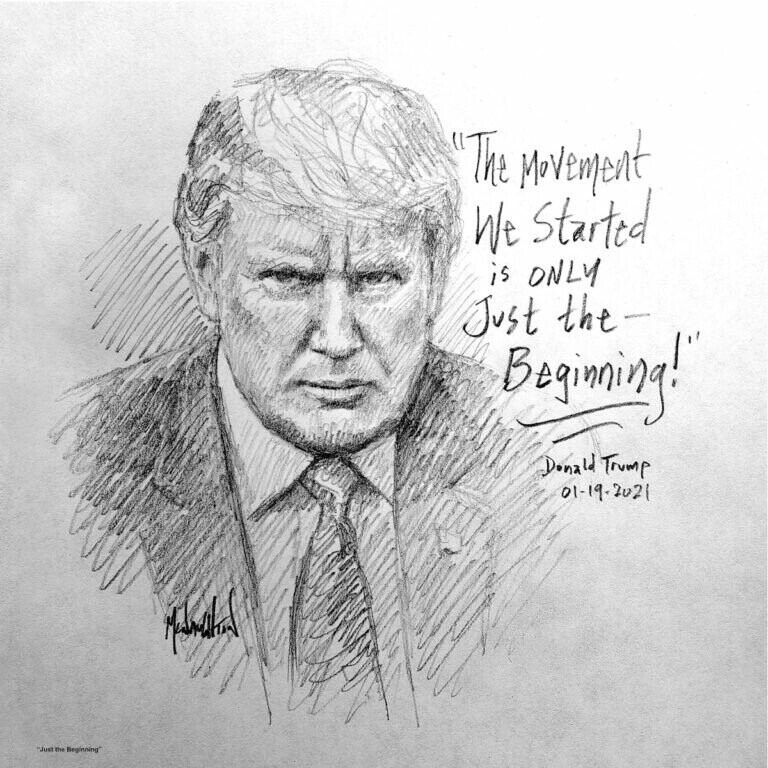 "The Movement
We Started
is ONLY
Just the —
Beginning!"
Donald Trump
01-19-2021
"Just the Beginning"